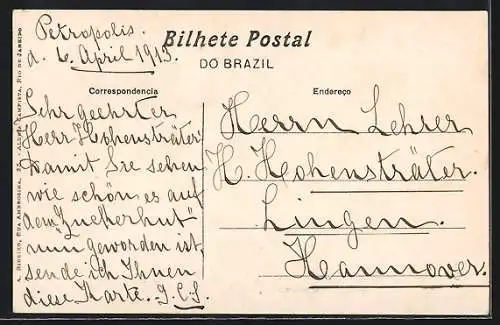 Petropolis.
d. 6. April 1913.
Bilhete Postal
DO BRAZIL
Correspondencia
Endereço
Sehr geehrter
Herr Hohensträter!
Damit Sie sehen
wie schön es auf
dem "Zuckerhut"
nun geworden ist,
sende ich Ihnen
diese Karte. J.C.S.
Herrn Lehrer
H. Hohensträter.
Lingen.
Hannover.
A. RIBEIRO, RUA
RIO DE JANEIRO